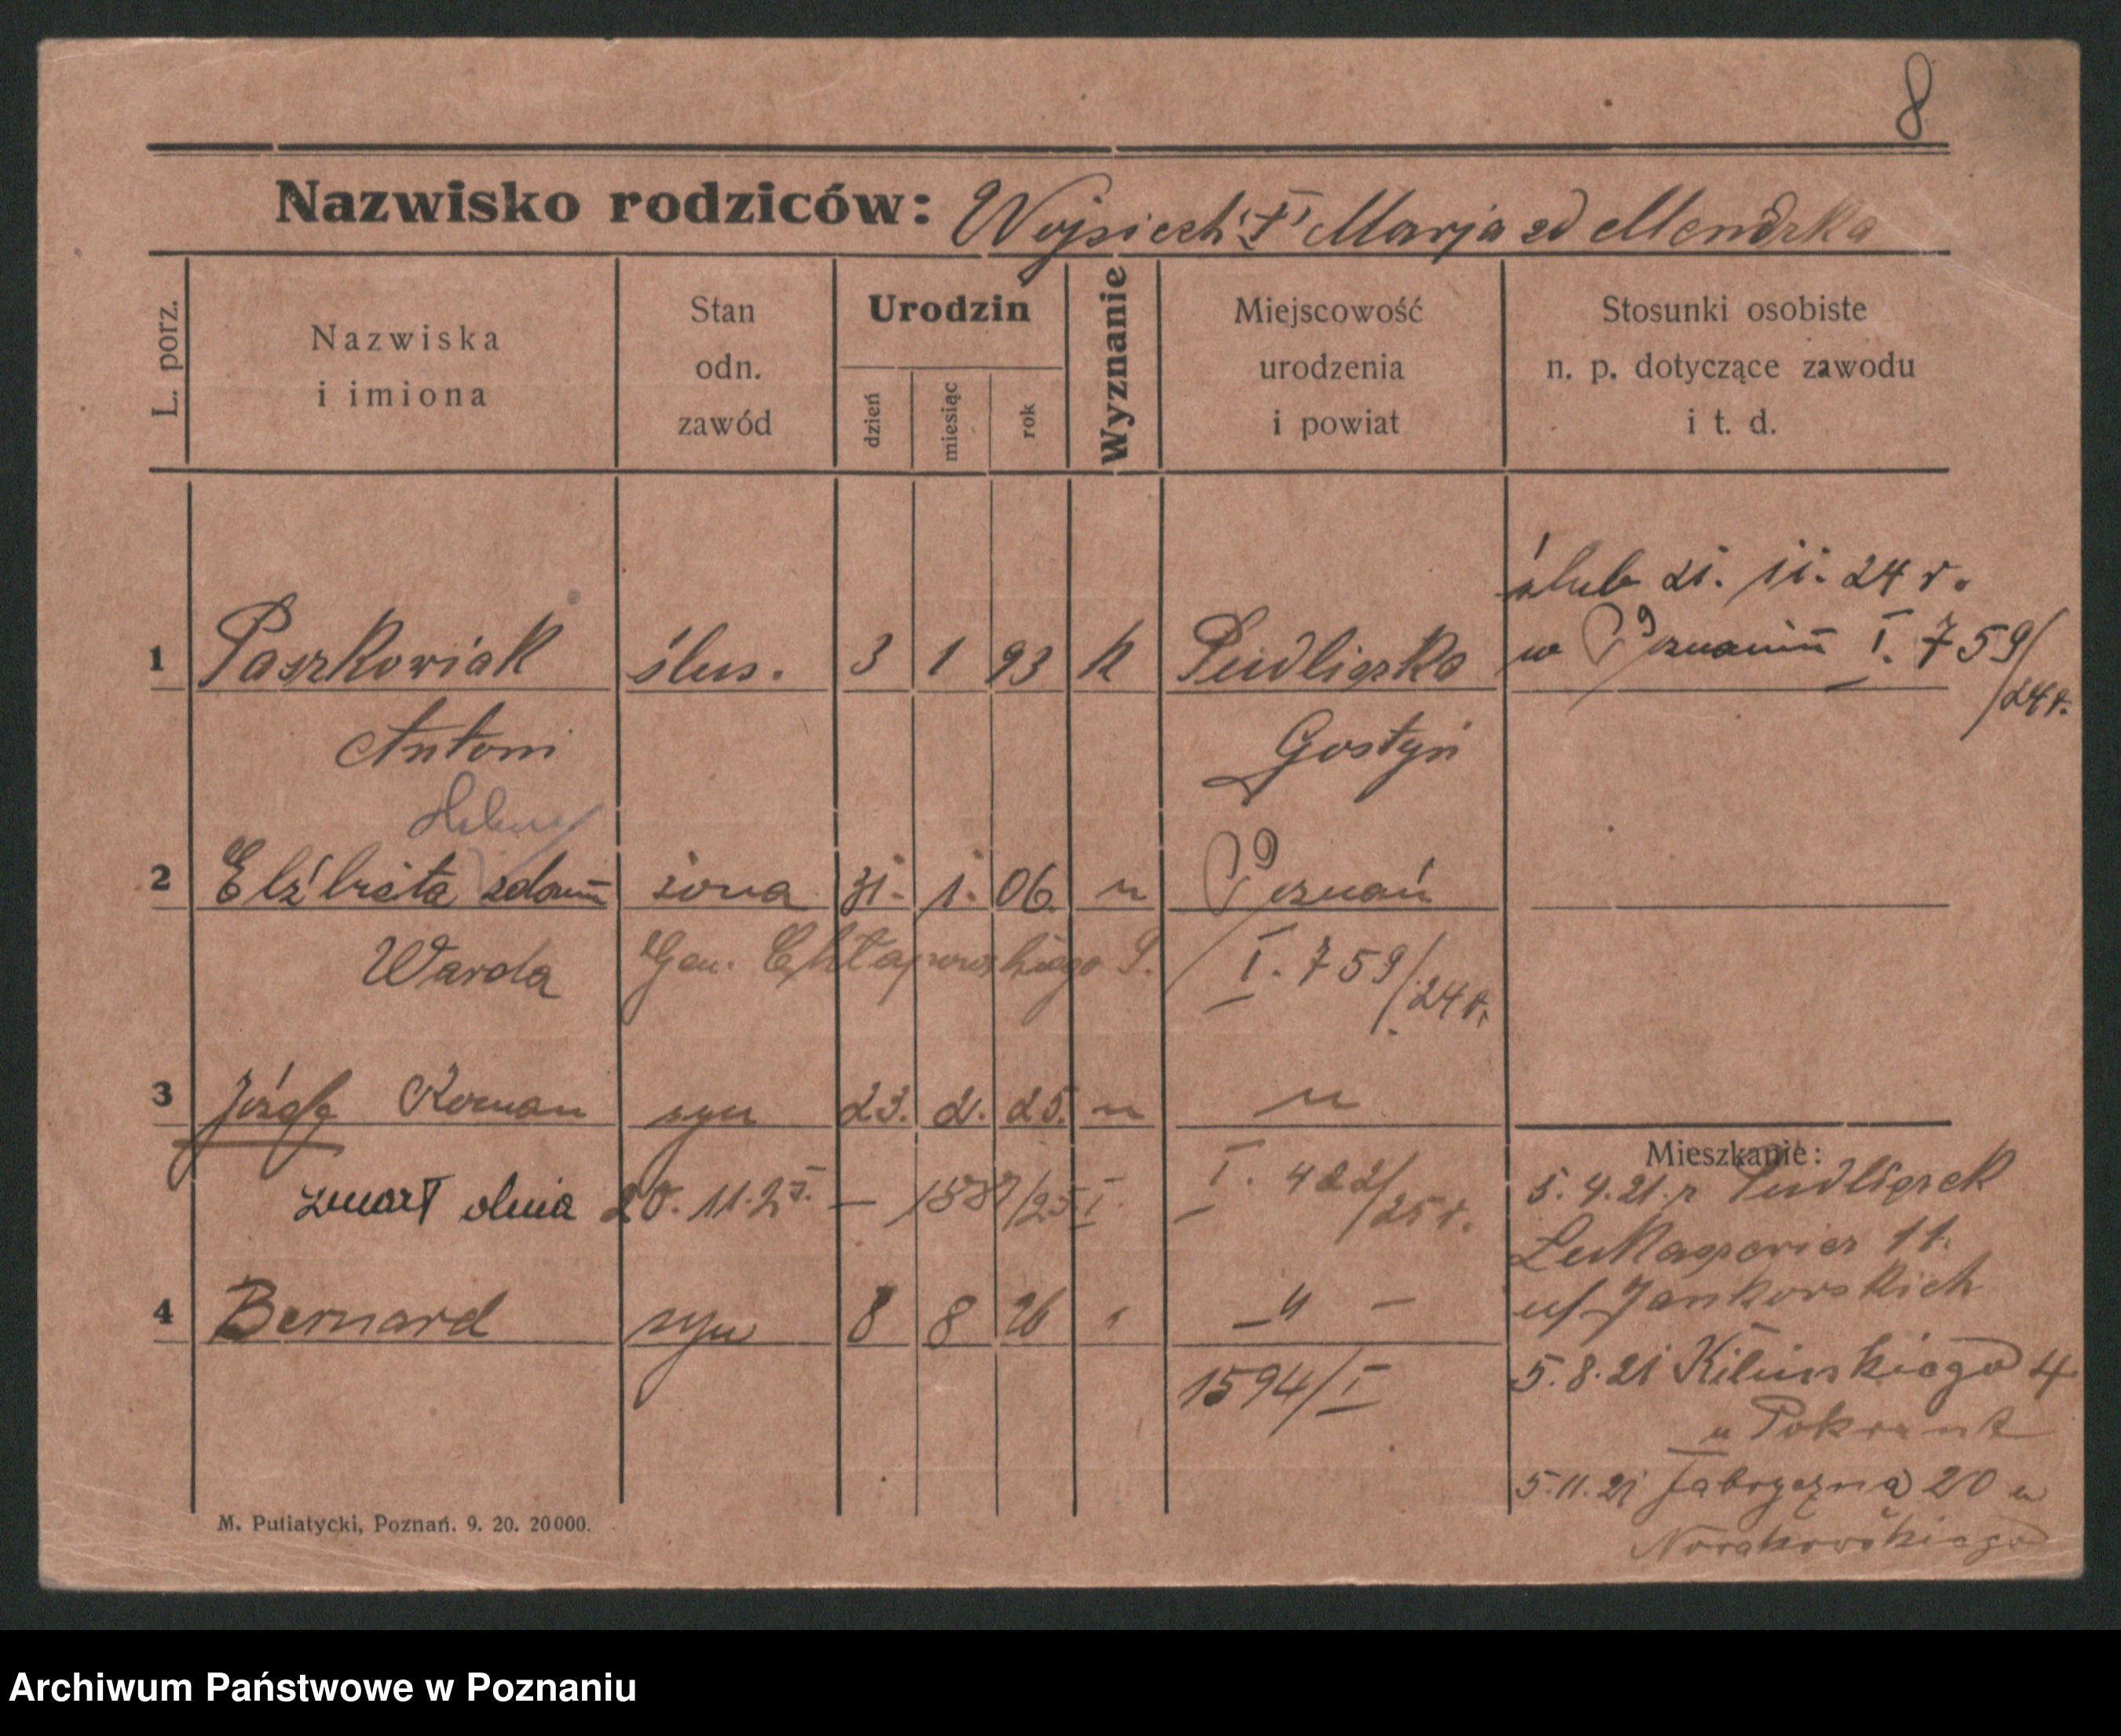 8
Nazwisko rodziców: Wojciech † Marja zd Mendrka
L. porz.
Nazwiska i imiona
Stan odn. zawód
Urodzin
dzień miesiąc rok
Wyznanie
Miejscowość urodzenia i powiat
Stosunki osobiste n. p. dotyczące zawodu i t. d.
ślub 21. 11. 24 r.
1 Paszkowiak ślus. 3 1 93 k Pudliszka w Poznaniu I. 759/24 r.
Antoni Gostyń
Helena
2 Elżbieta zdom żona 31. 1. 06 " Poznań
Warda Gen. Chłapowskiego I. 759/24 r.
3 Józef Roman syn 23. 2. 25. " "
Mieszkanie:
zmarł dnia 20. 11. 25. — 1587/25 I. I. 422/25 r.
5. 4. 21. z Pudliszek
11.
u/ Jankowskich
4 Bernard syn 8 8 26 " — " —
1594/I
5. 8. 21 Kilińskiego 4
u Pokrant
5. 11. 21 Fabryczna 20 u
Nowakowskiego
M. Putiatycki, Poznań. 9. 20. 20000.
Archiwum Państwowe w Poznaniu